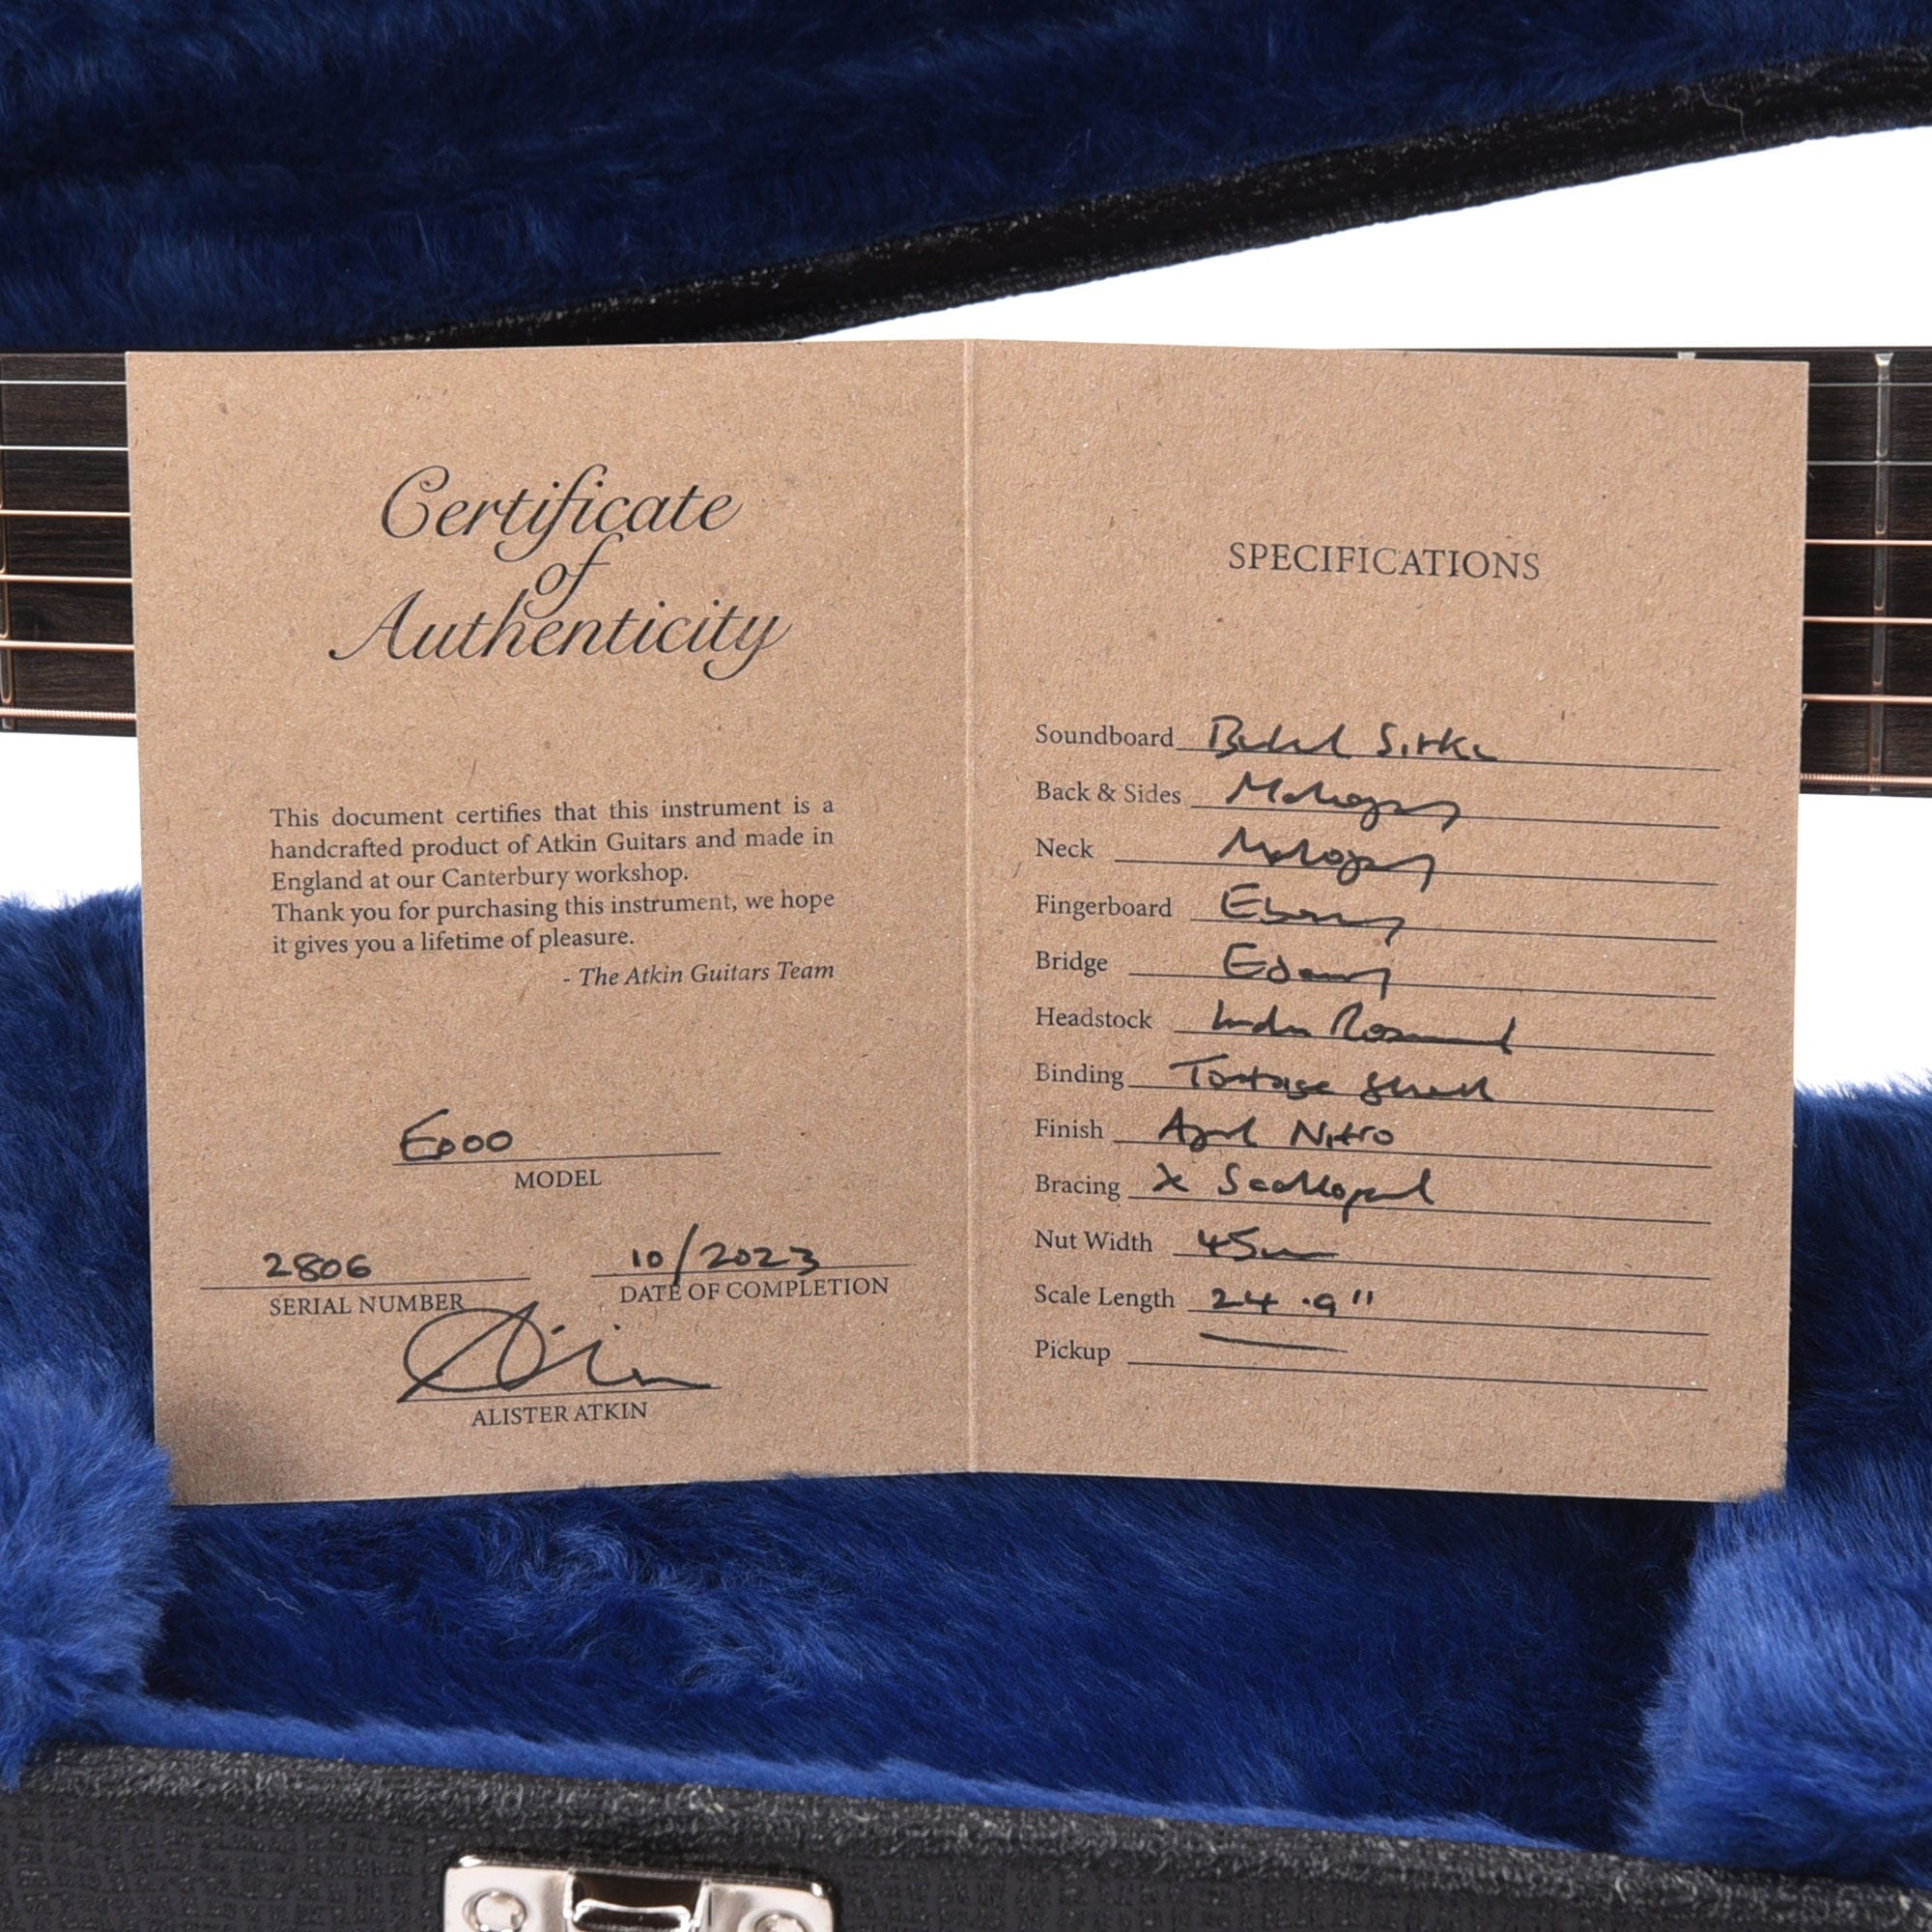 Certificate
of
Authenticity
This document certifies that this instrument is a
handcrafted product of Atkin Guitars and made in
England at our Canterbury workshop.
Thank you for purchasing this instrument, we hope
it gives you a lifetime of pleasure.
- The Atkin Guitars Team
MODEL
2806
SERIAL NUMBER
10/2023
DATE OF COMPLETION
ALISTER ATKIN
SPECIFICATIONS
Soundboard Baked Sitka
Back & Sides Mahogany
Neck Mahogany
Fingerboard Ebony
Bridge Ebony
Headstock Indian Rosewood
Binding Tortoise Shell
Finish Aged Nitro
Bracing X Scalloped
Nut Width 45mm
Scale Length 24.9"
Pickup —